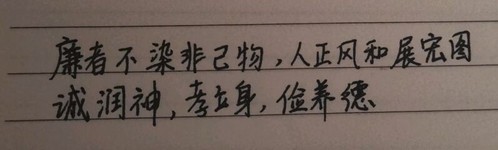 廉者不染非己物，人正风和展宏图
诚润神，孝立身，俭养德